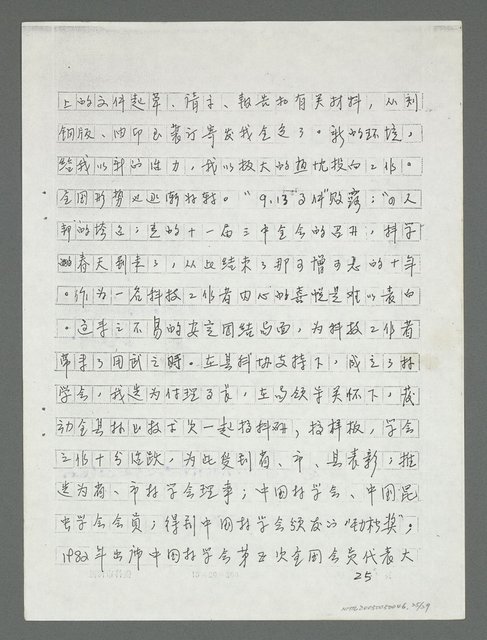 上的文件起草、请示、报告和有关材料，从刻
钢版、油印到装订等我全包了。新的环境，
给我以新的活力，我以极大的热忱投向工作。
全国形势也逐渐好转。“9.13事件”败露；“四人
帮”的垮台；党的十一届三中全会的召开，科学
的春天到来了，从此结束了那可憎可恶的十年
。作为一名科技工作者内心的喜悦是难以表白
。这来之不易的安定团结局面，为科技工作者
带来了用武之时。在县科协支持下，成立了林
学会，我选为付理事长，在局领导关怀下，发
动全县林业技术人员一起搞科研，搞样板，学会
工作十分活跃，为此受到省、市、县表彰；推
选为省、市林学会理事；中国林学会、中国昆
虫学会会员；得到中国林学会颁发的“劲松奖”，
1982年出席中国林学会第五次全国会员代表大
25
NMTL20050050046，25/29